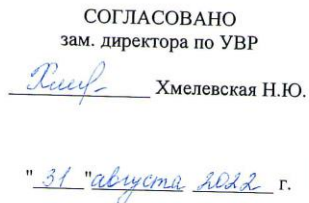 СОГЛАСОВАНО
зам. директора по УВР
Хмелевская Н.Ю.
"31" августа 2022 г.